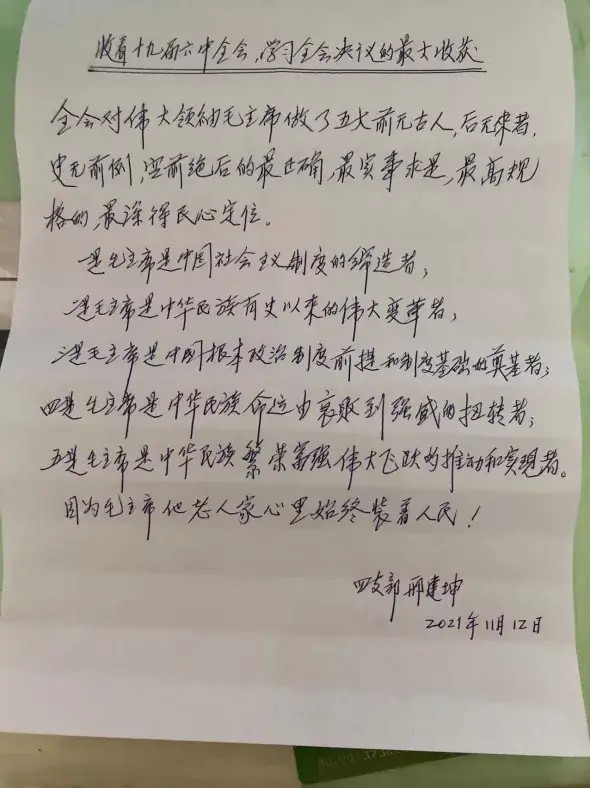 收看十九届六中全会,学习全会决议的最大收获
全会对伟大领袖毛主席做了五大前无古人,后无来者,
史无前例,空前绝后的最正确,最实事求是,最高规
格的,最深得民心定位。
一是毛主席是中国社会主义制度的缔造者;
二是毛主席是中华民族有史以来的伟大变革者;
三是毛主席是中国根本政治制度前提和制度基础的奠基者;
四是毛主席是中华民族命运由衰败到强盛的扭转者;
五是毛主席是中华民族繁荣富强伟大飞跃的推动和实现者。
因为毛主席他老人家心里始终装着人民!
四支部 邢建坤
2021年11月12日